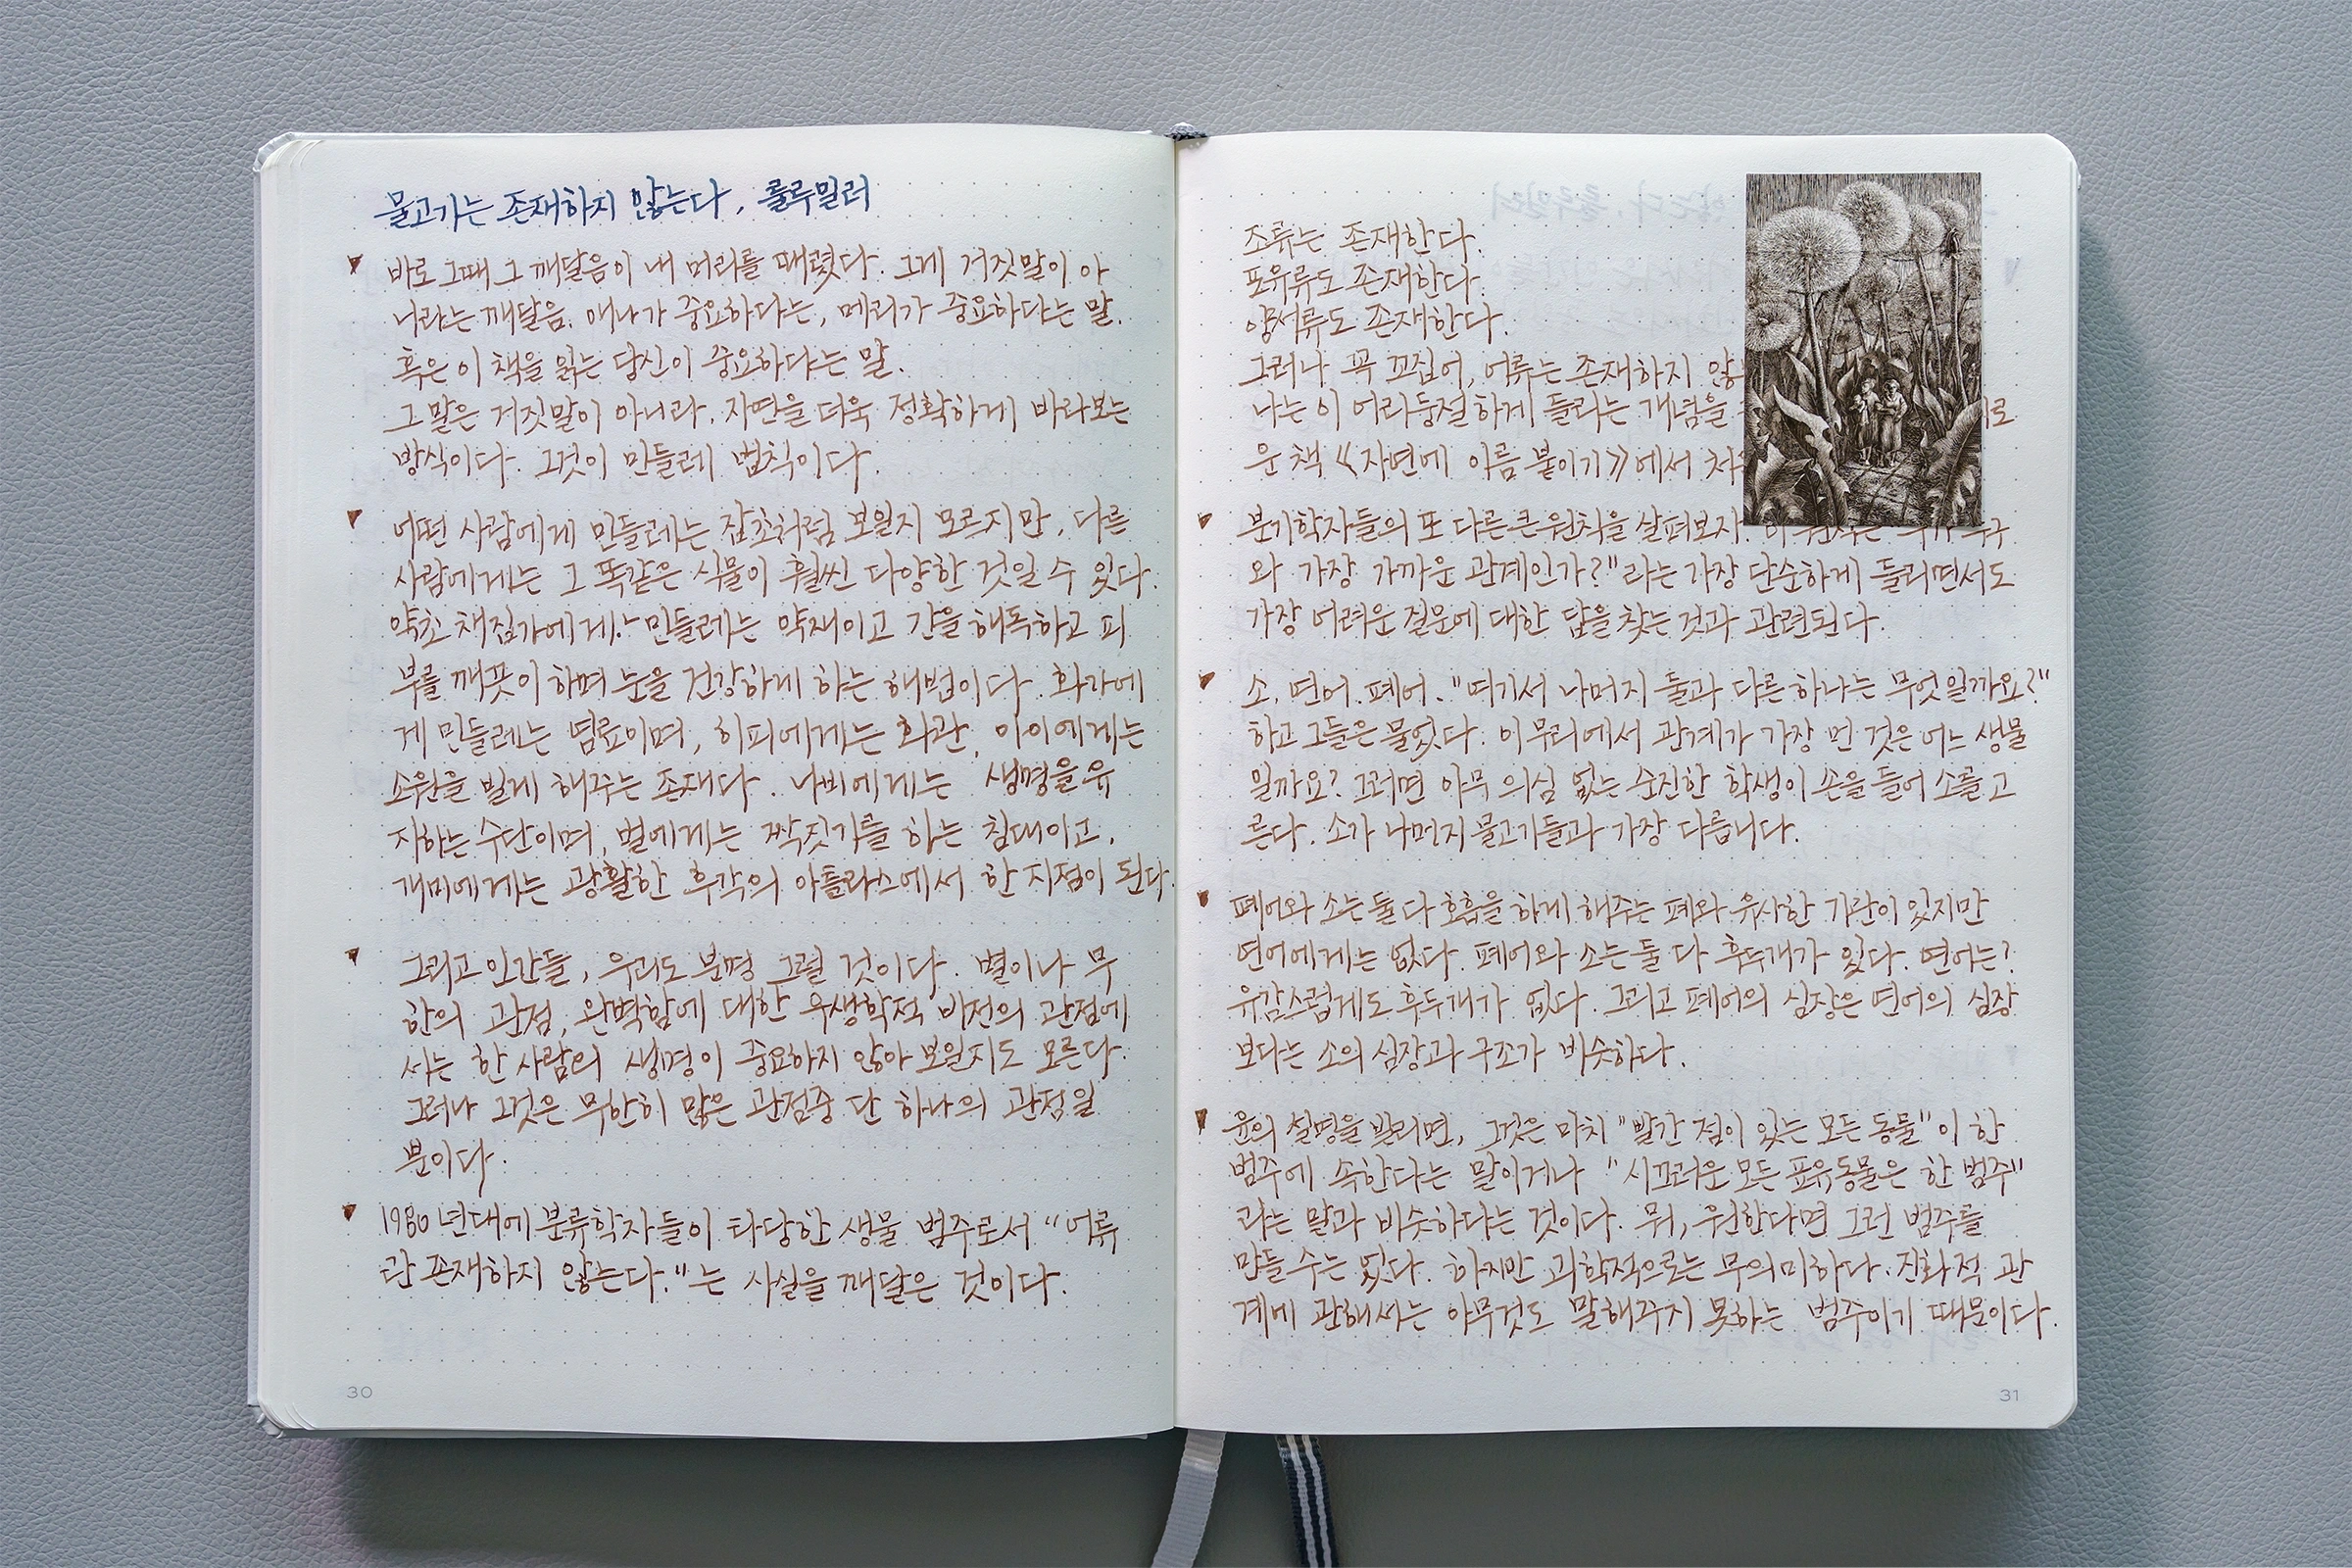 물고기는 존재하지 않는다, 룰루밀러
바로 그때 그 깨달음이 내 머리를 때렸다. 그게 거짓말이 아
니라는 깨달음. 애나가 중요하다는, 메리가 중요하다는 말.
혹은 이 책을 읽는 당신이 중요하다는 말.
그 말은 거짓말이 아니라, 자연을 더욱 정확하게 바라보는
방식이다. 그것이 민들레 법칙이다.
어떤 사람에게 민들레는 잡초처럼 보일지 모르지만, 다른
사람에게는 그 똑같은 식물이 훨씬 다양한 것일 수 있다.
약초 채집가에게 민들레는 약재이고 간을 해독하고 피
부를 깨끗이 하며 눈을 건강하게 하는 해법이다. 화가에
게 민들레는 염료이며, 히피에게는 화관, 아이에게는
소원을 빌게 해주는 존재다. 나비에게는 생명을 유
지하는 수단이며, 벌에게는 짝짓기를 하는 침대이고,
개미에게는 광활한 후각의 아틀라스에서 한 지점이 된다.
그리고 인간들, 우리도 분명 그럴 것이다. 별이나 무
한의 관점, 완벽함에 대한 우생학적 비전의 관점에
서는 한 사람의 생명이 중요하지 않아 보일지도 모른다.
그러나 그것은 무한히 많은 관점중 단 하나의 관점일
뿐이다.
1980년대에 분류학자들이 타당한 생물 범주로서 "어류
란 존재하지 않는다."는 사실을 깨달은 것이다.
30
조류는 존재한다.
포유류도 존재한다.
양서류도 존재한다.
그러나 꼭 꼬집어, 어류는 존재하지 않
나는 이 어리둥절하게 들리는 개념을 로
운 책 《자연에 이름 붙이기》에서 처
분기학자들의 또 다른 큰 원칙을 살펴보자.
와 가장 가까운 관계인가?"라는 가장 단순하게 들리면서도
가장 어려운 질문에 대한 답을 찾는 것과 관련된다.
소, 연어, 폐어. "여기서 나머지 둘과 다른 하나는 무엇일까요?"
하고 그들은 물었다. 이 무리에서 관계가 가장 먼 것은 어느 생물
일까요? 그러면 아무 의심 없는 순진한 학생이 손을 들어 소를 고
른다. 소가 나머지 물고기들과 가장 다릅니다.
폐어와 소는 둘 다 호흡을 하게 해주는 폐와 유사한 기관이 있지만
연어에게는 없다. 폐어와 소는 둘 다 후두개가 있다. 연어는?
유감스럽게도 후두개가 없다. 그리고 폐어의 심장은 연어의 심장
보다는 소의 심장과 구조가 비슷하다.
윤의 설명을 빌리면, 그것은 마치 "빨간 점이 있는 모든 동물"이 한
범주에 속한다는 말이거나 "시끄러운 모든 포유동물은 한 범주"
라는 말과 비슷하다는 것이다. 뭐, 원한다면 그런 범주를
만들 수는 있다. 하지만 과학적으로는 무의미하다. 진화적 관
계에 관해서는 아무것도 말해주지 못하는 범주이기 때문이다.
31